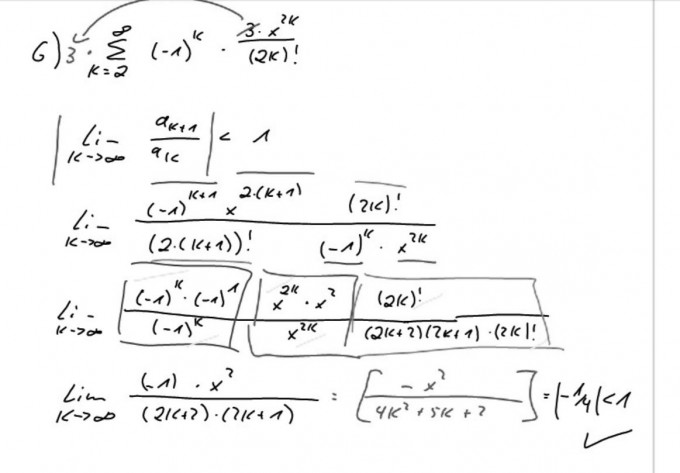 6) 3 · ∑_{k=2}^{∞} (-1)^k · (3 · x^{2k})/((2k)!)
| lim_{k->∞} a_{k+1}/a_k | < 1
lim_{k->∞} ((-1)^{k+1} x^{2·(k+1)} (2k)!)/((2·(k+1))! (-1)^k · x^{2k})
lim_{k->∞} ((-1)^k · (-1)^1)/((-1)^k) | (x^{2k} · x^2)/(x^{2k}) | ((2k)!)/((2k+2)(2k+1) · (2k)!)
lim_{k->∞} ((-1) · x^2)/((2k+2) · (2k+1)) = [ (-x^2)/(4k^2 + 5k + 2) ] = |-1/4| < 1 ✓